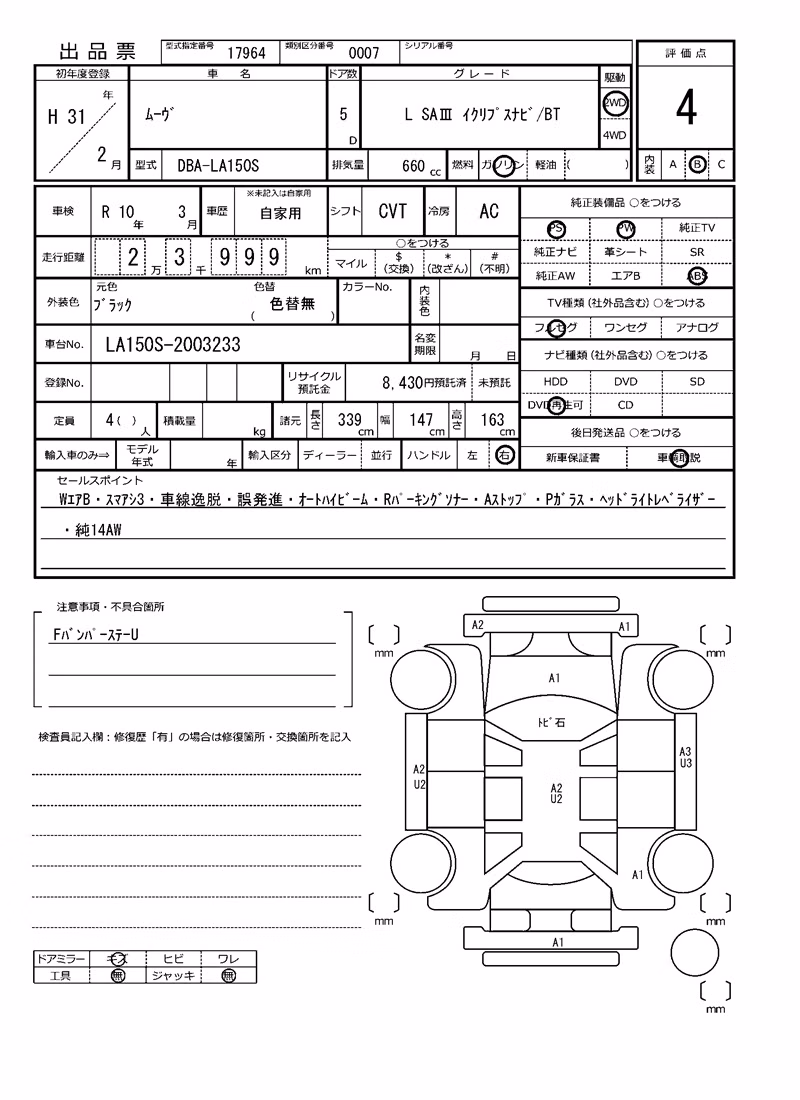 出品票 型式指定番号 17964 類別区分番号 0007 シリアル番号
評価点
4
内装 A B C
初年度登録 車名 ドア数 グレード 駆動
H 31 年 2 月 ムーヴ 5 D L SAⅢ イクリプスナビ/BT 2WD
4WD
型式 DBA-LA150S 排気量 660 cc 燃料 ガソリン 軽油 ( )
車検 R 10 年 3 月 車歴 ※未記入は自家用 自家用 シフト CVT 冷房 AC
走行距離 2 万 3 千 9 9 9 km ○をつける
マイル $(交換) *(改ざん) #(不明)
外装色 元色 ブラック 色替 ( 色替無 ) カラーNo. 内装色
車台No. LA150S-2003233 名変期限 月 日
登録No. リサイクル預託金 8,430円預託済 未預託
定員 4( ) 人 積載量 kg 諸元 長さ 339 cm 幅 147 cm 高さ 163 cm
輸入車のみ⇒ モデル年式 年 輸入区分 ディーラー 並行 ハンドル 左 右
純正装備品 ○をつける
PS PW 純正TV
純正ナビ 革シート SR
純正AW エアB ABS
TV種類(社外品含む)○をつける
フルセグ ワンセグ アナログ
ナビ種類(社外品含む)○をつける
HDD DVD SD
DVD再生可 CD
後日発送品 ○をつける
新車保証書 車輌取説
セールスポイント
WエアB・スマアシ3・車線逸脱・誤発進・オートハイビーム・Rパーキングソナー・Aストップ・Pガラス・ヘッドライトレベライザー
・純14AW
注意事項・不具合箇所
FバンパーステーU
検査員記入欄:修復歴「有」の場合は修復箇所・交換箇所を記入
ドアミラー キズ ヒビ ワレ
工具 無 ジャッキ 無
A2 A1
mm mm
A1
トビ石
A2
U2
A2
U2
A3
U3
A1
mm mm
A1
mm